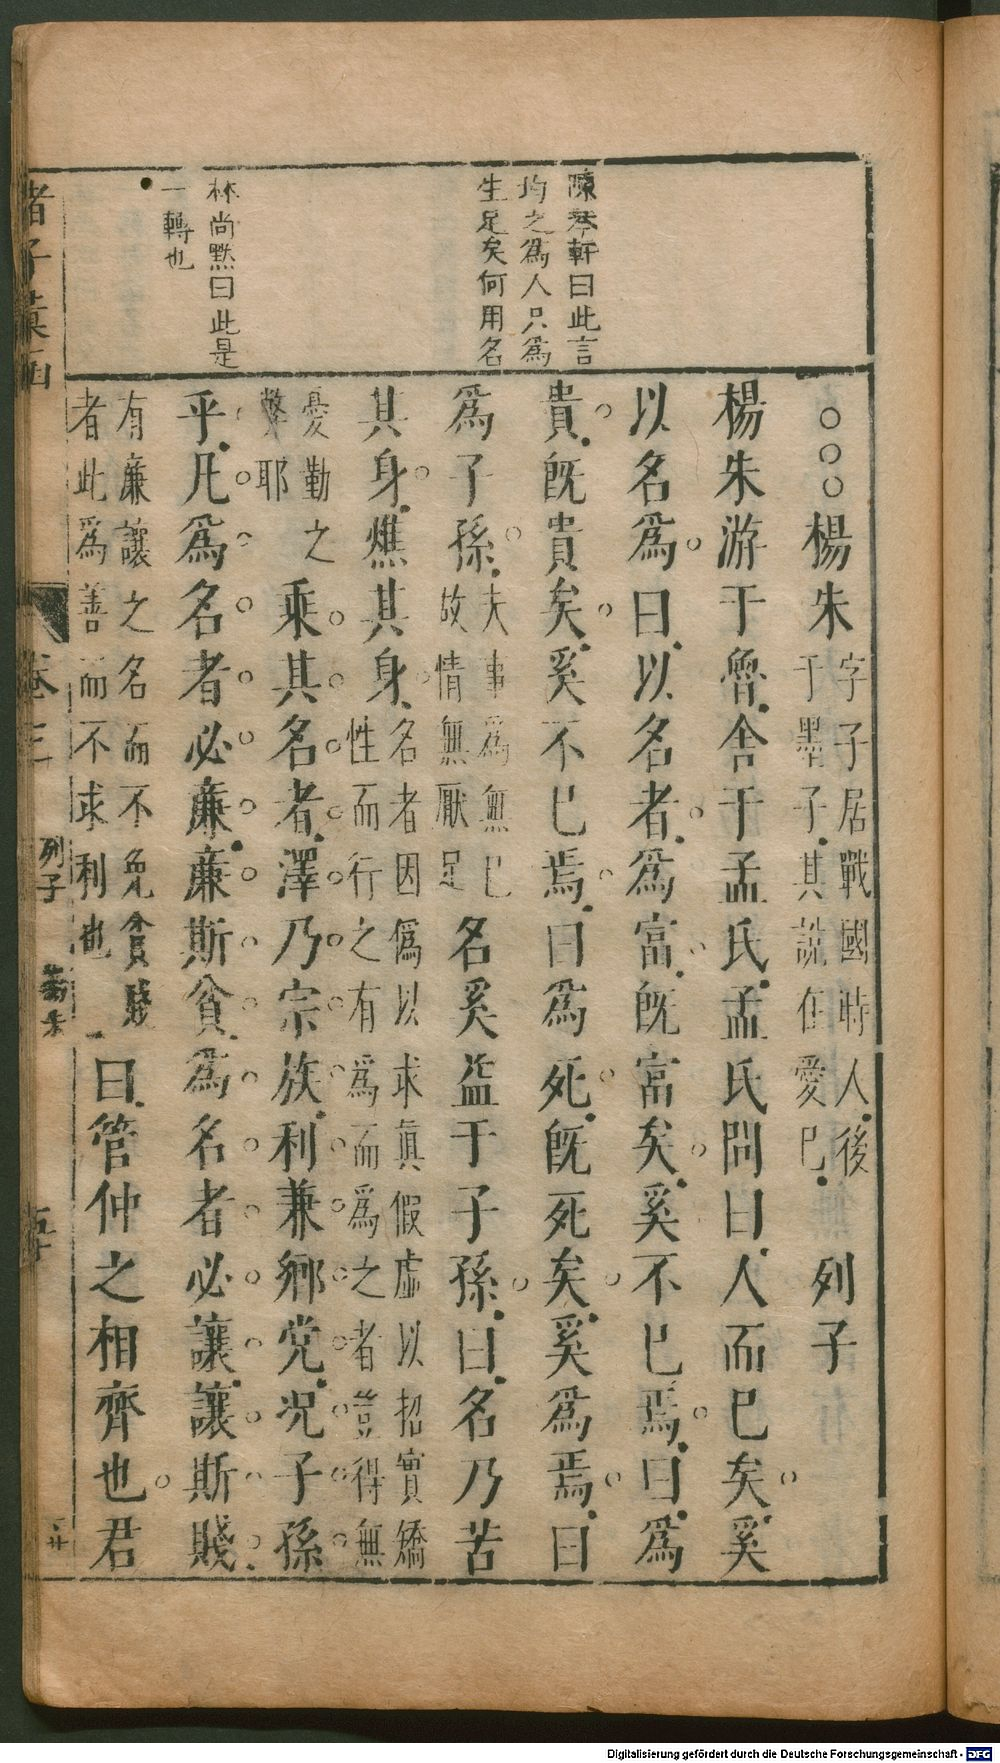 陳琴軒曰此言
均之為人只為
生足矣何用名
林尚默曰此是
一轉也
○○○楊朱字子居戰國時人後于墨子其說在愛己 列子
楊朱游于魯舍于孟氏孟氏問曰人而已矣奚
以名為曰以名者為富旣富矣奚不已焉曰為
貴旣貴矣奚不已焉曰為死旣死矣奚為焉曰
為子孫夫事為無已故情無厭足名奚益于子孫曰名乃苦
其身燋其身名者因偽以求真假虛以招實矯性而行之有為而為之者豈得無
憂勤之弊耶乘其名者澤乃宗族利兼鄉党況子孫
乎凡為名者必廉廉斯貧為名者必讓讓斯賤
有廉讓之名而不免貧賤者此為善而不求利也曰管仲之相齊也君
諸子彙函
卷三
列子
楊朱
Digitalisierung gefördert durch die Deutsche Forschungsgemeinschaft - DFG